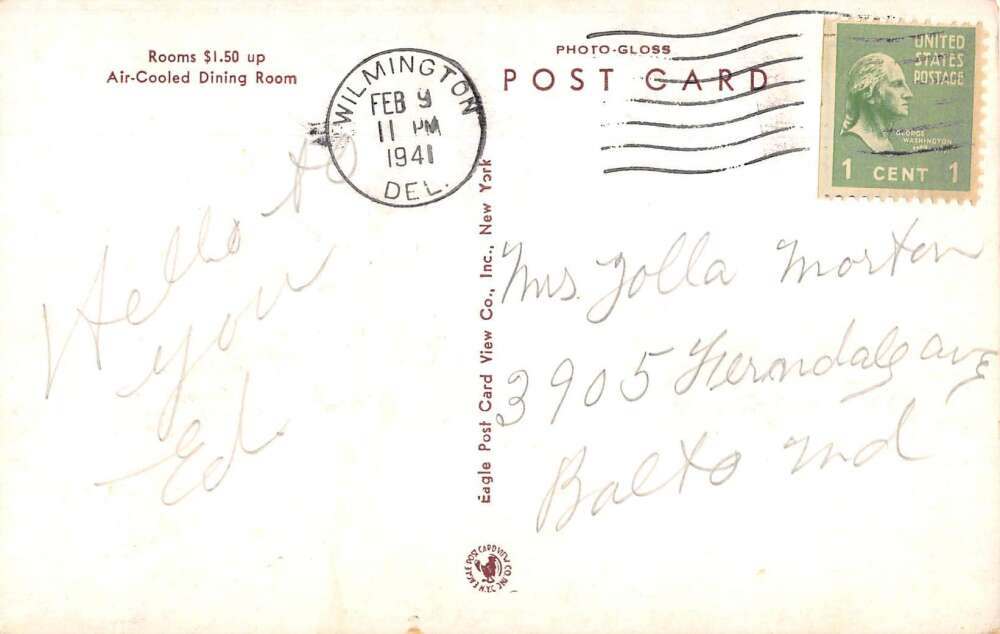 Rooms $1.50 up
Air-Cooled Dining Room
WILMINGTON
FEB 9
11 PM
1941
DEL.
PHOTO-GLOSS
POST CARD
UNITED
STATES
POSTAGE
GEORGE
WASHINGTON
1 CENT 1
Hello to
you
Ed
Eagle Post Card View Co., Inc., New York
Mrs. Zolla Morton
3905 Ferndale ave
Balto Md
EAGLE POST CARD VIEW CO. INC.
N.Y.C.